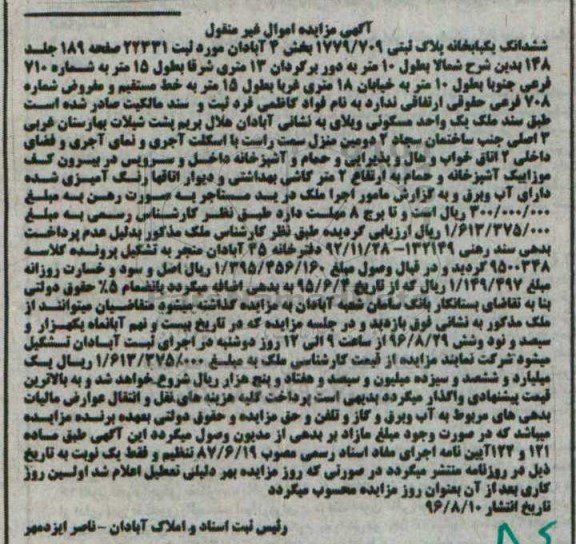 آگهی مزایده اموال غیر منقول
ششدانگ یکبابخانه پلاک ثبتی ۱۷۷۹/۷۰۹ بخش ۴ آبادان مورد ثبت ۲۲۳۳۱ صفحه ۱۸۹ جلد
۱۴۸ بدین شرح شمالا بطول ۱۰ متر به دور برگردان ۱۳ متری شرقا بطول ۱۵ متر به شماره ۷۱۰
فرعی جنوبا بطول ۱۰ متر به خیابان ۱۸ متری غربا بطول ۱۵ متر به خط مستقیم و مفروض شماره
۷۰۸ فرعی حقوقی ارتفاقی ندارد به نام فواد کاظمی فرد ثبت و سند مالکیت صادر شده است
طبق سند ملک یک واحد مسکونی ویلای به نشانی آبادان هلال بریم پشت شیلات بهارستان غربی
۳ اصلی جنب ساختمان سجاد ۲ دومین منزل سمت راست با اسکلت آجری و نمای آجری و فضای
داخلی ۲ اتاق خواب و هال و پذیرایی و حمام و آشپزخانه داخل و سرویس در بیرون کف
موزاییک آشپزخانه و حمام به ارتفاع ۲ متر کاشی بهداشتی و دیوار اتاقها رنگ آمیزی شده
دارای آب وبرق و به گزارش مامور اجرا ملک در ید مستاجر به صورت رهن به مبلغ
۳۰۰/۰۰۰/۰۰۰ ریال است و تا برج ۸ مهلت دارد طبق نظر کارشناس رسمی به مبلغ
۱/۶۱۳/۳۷۵/۰۰۰ ریال ارزیابی گردیده طبق نظر کارشناس ملک مذکور بدلیل عدم پرداخت
بدهی سند رهنی ۱۳۲۱۴۹– ۹۲/۱۱/۲۸ دفترخانه ۴۵ آبادان منجر به تشکیل پرونده کلاسه
۹۵۰۰۳۴۸ گردید و در قبال وصول مبلغ ۱/۳۹۵/۴۵۶/۱۶۰ ریال اصل و سود و خسارت روزانه
مبلغ ۱/۱۴۹/۴۹۷ ریال که از تاریخ ۹۵/۶/۴ به بدهی اضافه میگردد بانضمام ۵٪ حقوق دولتی
بنا به تقاضای بستانکار بانک سامان شعبه آبادان به مزایده گذاشته میشود متقاضیان میتوانند از
ملک مذکور به نشانی فوق بازدید و در جلسه مزایده که در تاریخ بیست و نهم آبانماه یکهزار و
سیصد و نود وشش ۹۶/۸/۲۹ از ساعت ۹ الی ۱۲ روز دوشنبه در اجرای ثبت آبادان تشکیل
میشود شرکت نمایند مزایده از قیمت کارشناسی ملک به مبلغ ۱/۶۱۳/۳۷۵/۰۰۰ ریال یک
میلیارد و ششصد و سیزده میلیون و سیصد و هفتاد و پنج هزار ریال شروع خواهد شد و به بالاترین
قیمت پیشنهادی واگذار میگردد بدیهی است پرداخت کلیه هزینه های نقل و انتقال عوارض مالیات
بدهی های مربوط به آب وبرق و گاز و تلفن و حق مزایده و حقوق دولتی بعهده برنده مزایده
میباشد که در صورت وجود مبلغ مازاد بر بدهی از مدیون وصول میگردد این آگهی طبق ماده
۱۲۱ و ۱۲۲آیین نامه اجرای مفاد اسناد رسمی مصوب ۸۷/۶/۱۹ تنظیم و فقط یک نوبت به تاریخ
ذیل در روزنامه منتشر میگردد در صورتی که روز مزایده بهر دلیلی تعطیل اعلام شد اولین روز
کاری بعد از آن بعنوان روز مزایده محسوب میگردد
تاریخ انتشار ۹۶/۸/۱۰
رئیس ثبت اسناد و املاک آبادان -ناصر ایزدمهر